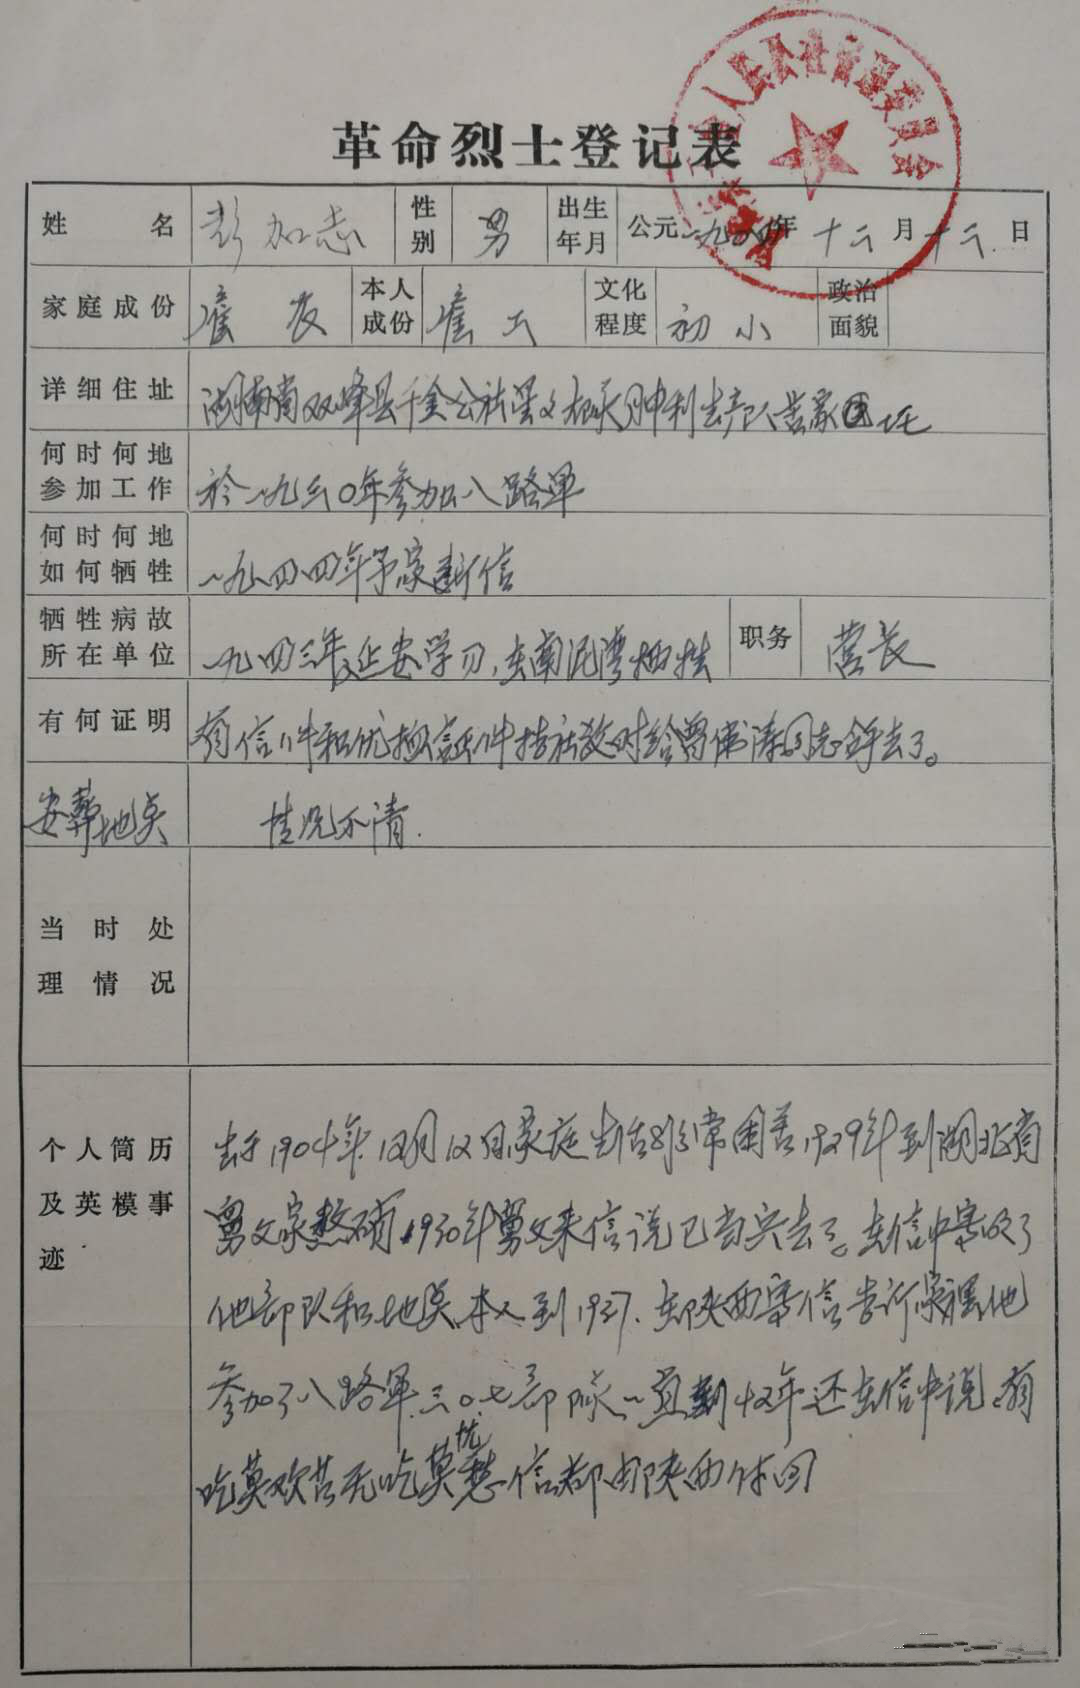 人民公社管理委员会
革命烈士登记表
姓名 彭加志 性别 男 出生年月 公元一九〇四年十二月十二日
家庭成份 雇农 本人成份 雇工 文化程度 初小 政治面貌
详细住址 湖南省双峰县千金公社 胜利
何时何地参加工作 於一九三〇年参加八路軍
何时何地如何牺牲 一九四四年 家 信
牺牲病故所在单位 一九四三年 延安学习,在南泥湾牺牲 职务 营长
有何证明 有信件和优抚证件 社教时给曾 同志 去了。
安葬地点 情况不清.
当时处理情况
个人简历及英模事迹
生于1904年12月12日家庭生活非常困苦1929年到湖北省
舅父家 1930年舅父来信说已当兵去了。在信中 了
他部队和地点.本人到1937.在陕西寄信告诉家里他
参加了八路軍.三〇.七部队一直到42年还在信中说.有
吃莫欢苦无吃莫忧愁信都由陕西付回